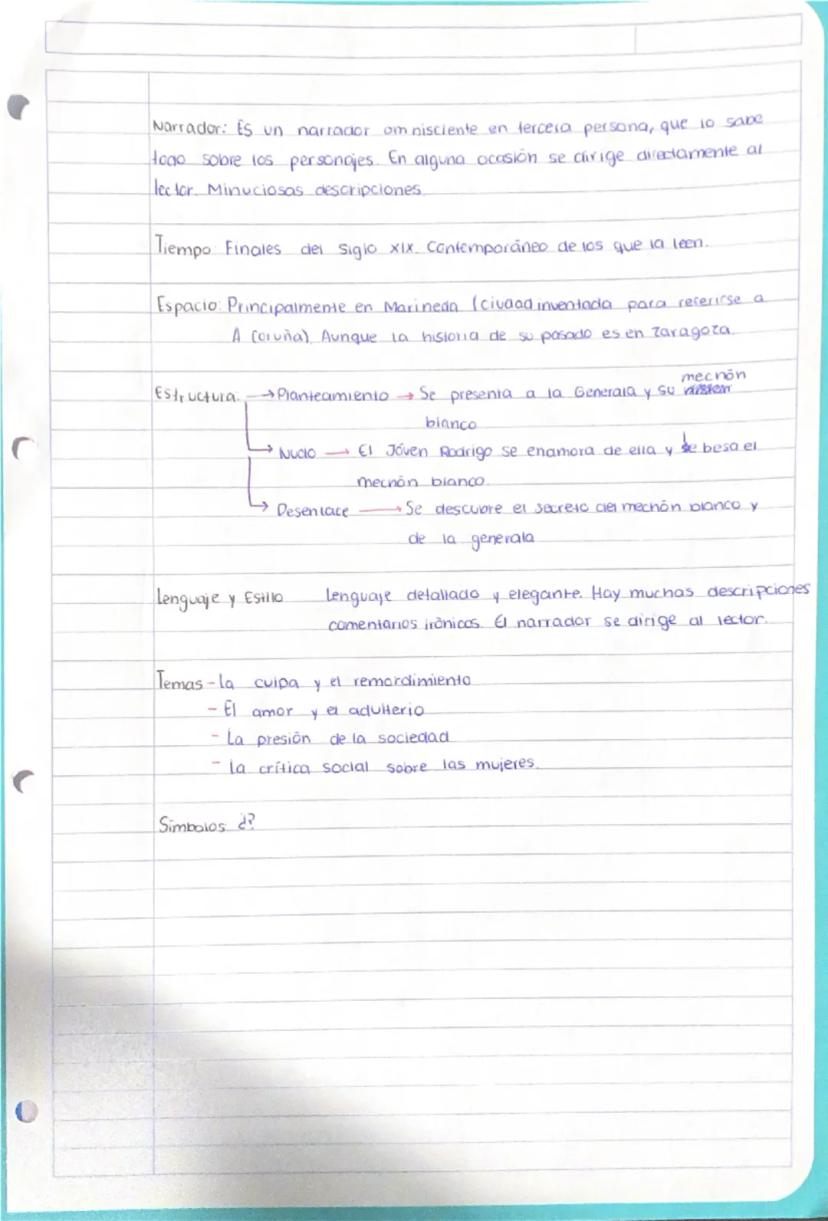 Narrador: Es un narrador omnisciente en tercera persona, que lo sabe
todo sobre los personajes. En alguna ocasión se dirige directamente al
lector. Minuciosas descripciones.
Tiempo Finales del siglo XIX. Contemporáneo de los que la leen.
Espacio: Principalmente en Marineda (ciudad inventada para referirse a
A Coruña). Aunque la historia de su pasado es en Zaragoza.
Estructura: → Planteamiento → Se presenta a la Generala y su mechón
blanco
→ Nudo → El Jóven Rodrigo se enamora de ella y le besa el
mechón blanco.
→ Desenlace → Se descubre el secreto del mechón blanco y
de la generala
Lenguaje y Estilo Lenguaje detallado y elegante. Hay muchas descripciones
comentarios irónicos. El narrador se dirige al lector.
Temas - La culpa y el remordimiento
- El amor y el adulterio
- La presión de la sociedad
- La crítica social sobre las mujeres.
Símbolos ¿?